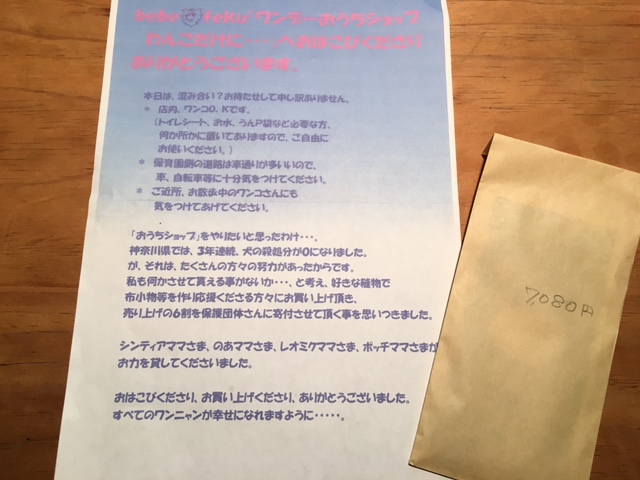 bebe teku ワンデーおうちショップ
わんこだけに・・・へおはこびくださり
ありがとうございます。
本日は、混み合い？お待たせして申し訳ありません。
* 店内、ワンコO.Kです。
(トイレシート、お水、うんP袋など必要な方、
何か所かに置いてありますので、ご自由に
お使いください。)
* 保育園側の道路は車通りが多いので、
車、自転車等に十分気をつけてください。
* ご近所、お散歩中のワンコさんにも
気をつけてあげてください。
「おうちショップ」をやりたいと思ったわけ・・・。
神奈川県では、3年連続、犬の殺処分が0になりました。
が、それは、たくさんの方々の努力があったからです。
私も何かさせて貰える事がないか・・・、と考え、好きな縫物で
布小物等を作り応援くださる方々にお買い上げ頂き、
売り上げの6割を保護団体さんに寄付させて頂く事を思いつきました。
シンティアママさま、のあママさま、レオミクママさま、ポッチママさまが
お力を貸してくださいました。
おはこびくださり、お買い上げくださり、ありがとうございました。
すべてのワンニャンが幸せになれますように・・・・・。
7,080円